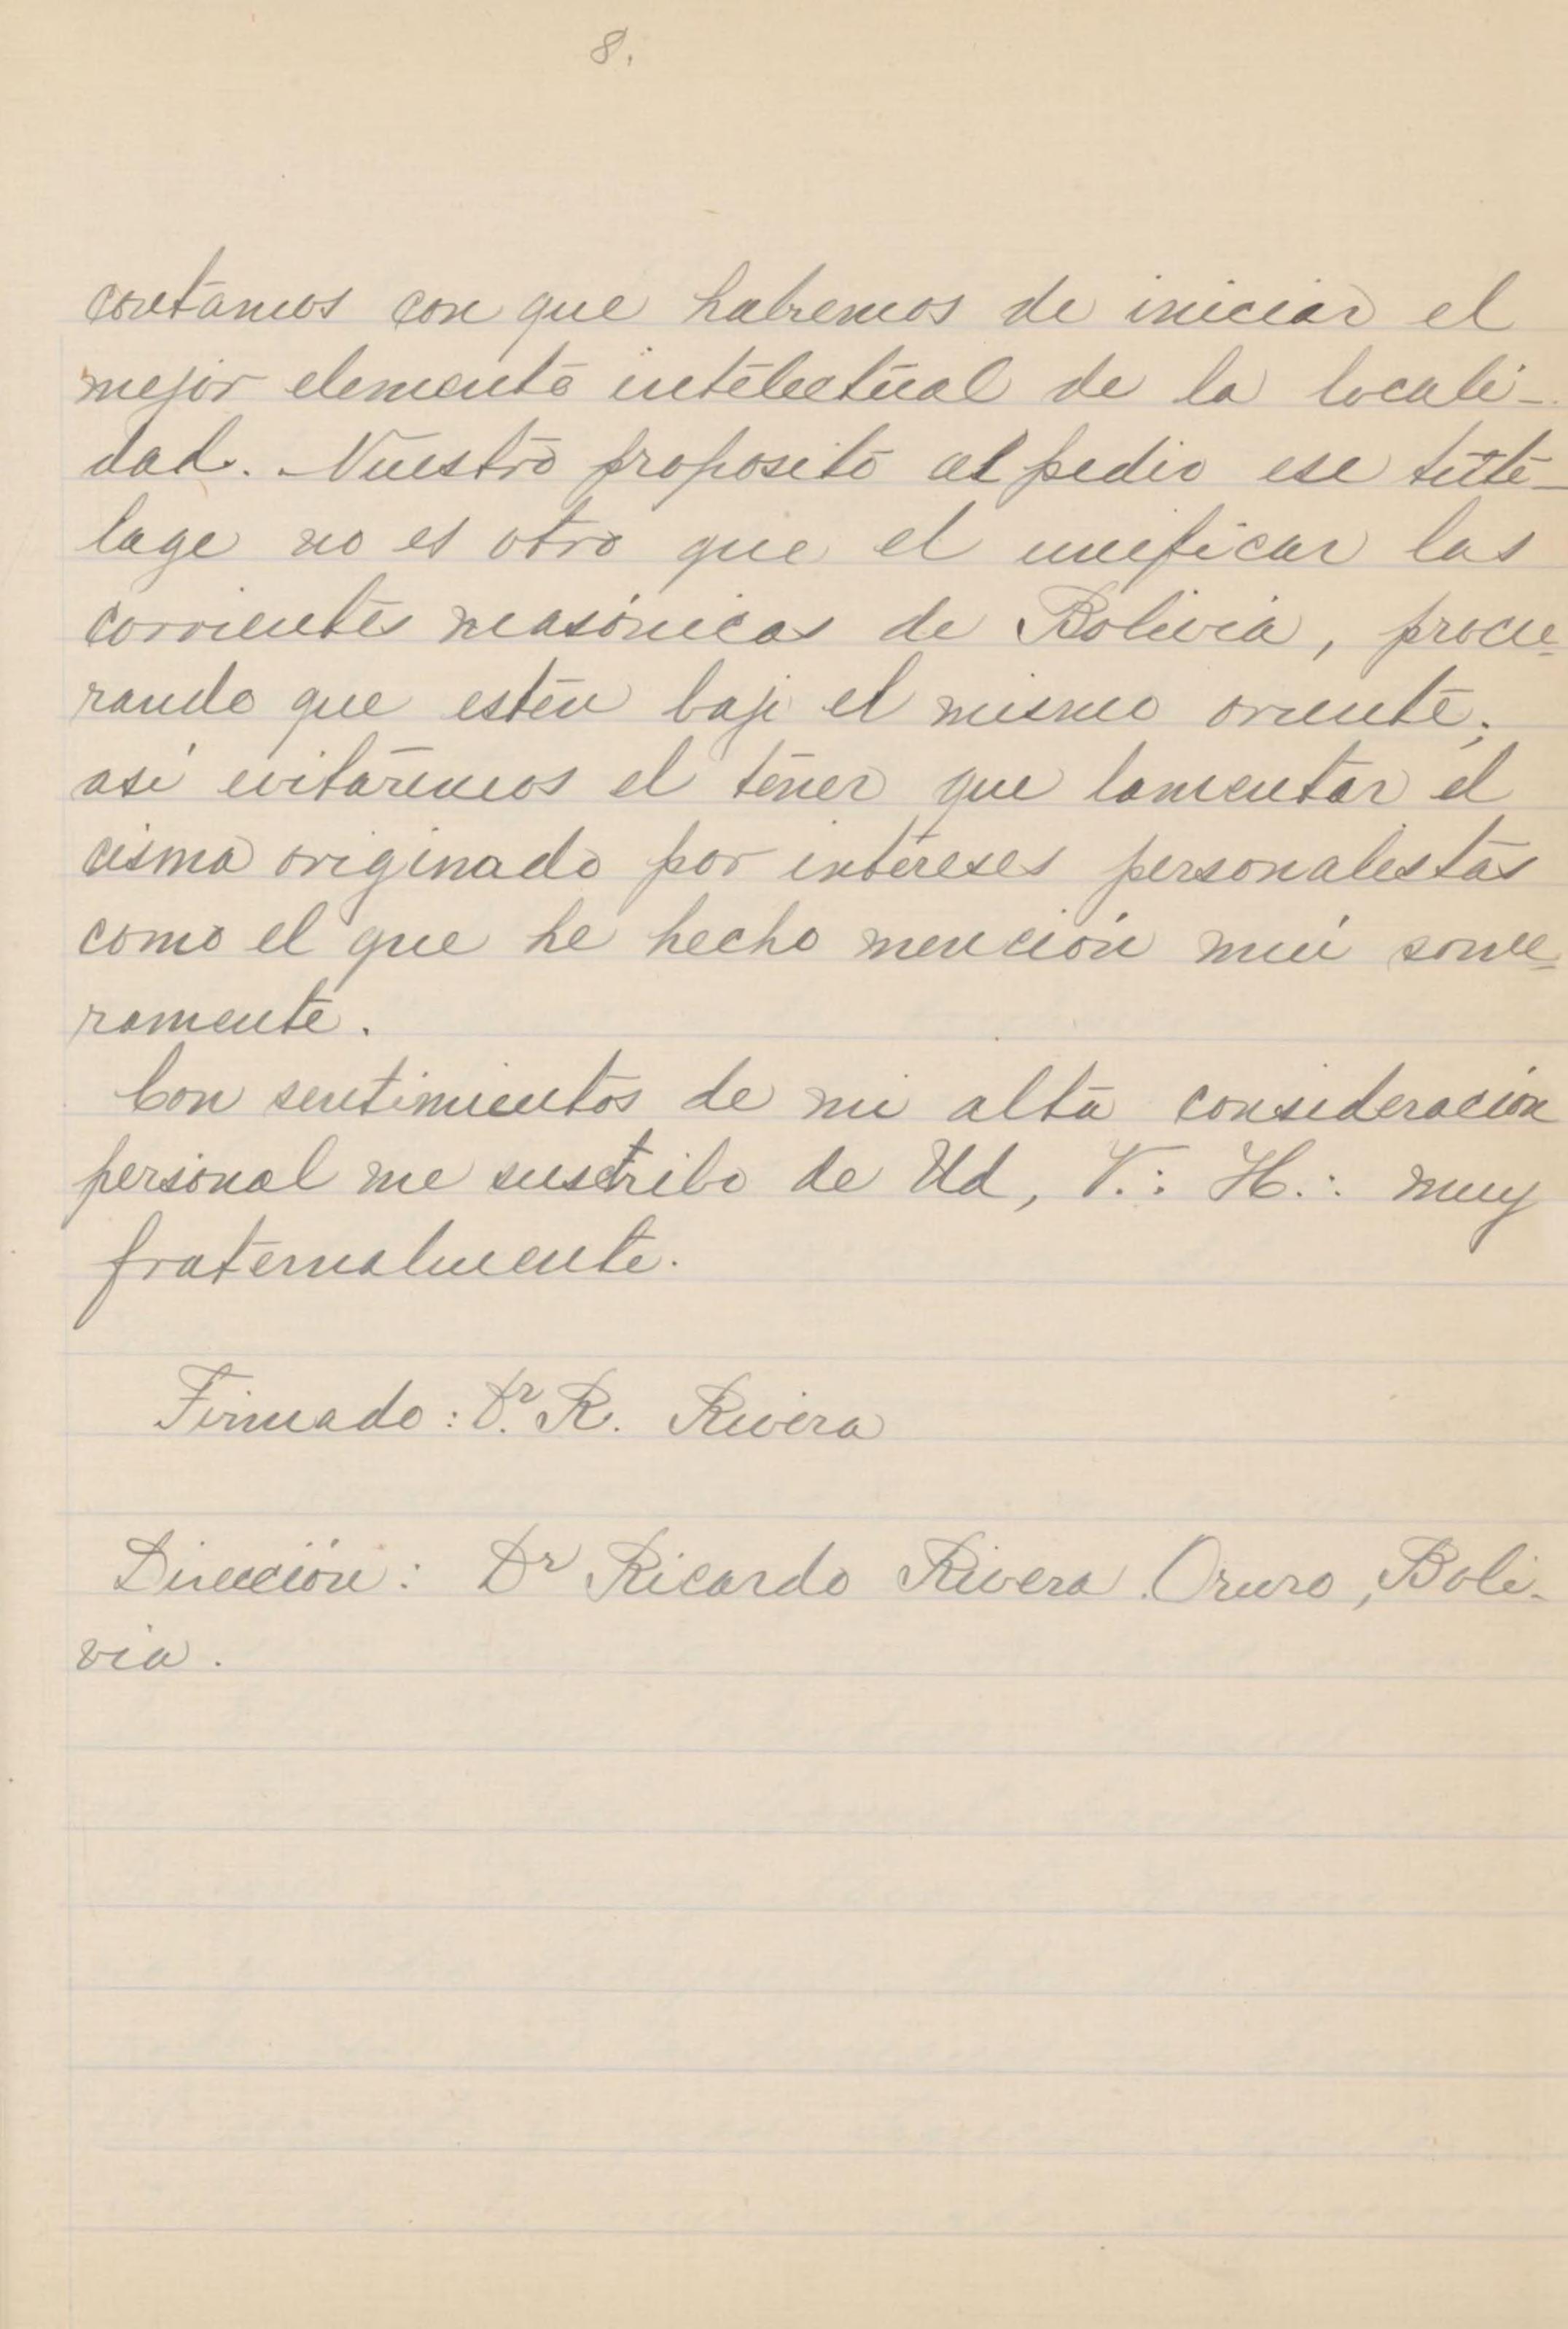 8.
contamos con que habremos de iniciar el
mejor elemento intelectual de la locali-
dad. Nuestro proposito al pedir ese tute-
lage no es otro que el unificar las
corrientes masónicas de Bolivia, procu-
rando que estén bajo el mismo oriente;
asi evitaremos el tener que lamentar el
cisma originado por intereses personalistas
como el que he hecho mención mui some-
ramente.
Con sentimientos de mi alta consideración
personal me suscribo de Ud, V.: H.: muy
fraternalmente.
Firmado: Dr. R. Rivera
Dirección: Dr Ricardo Rivera. Oruro, Boli-
via.